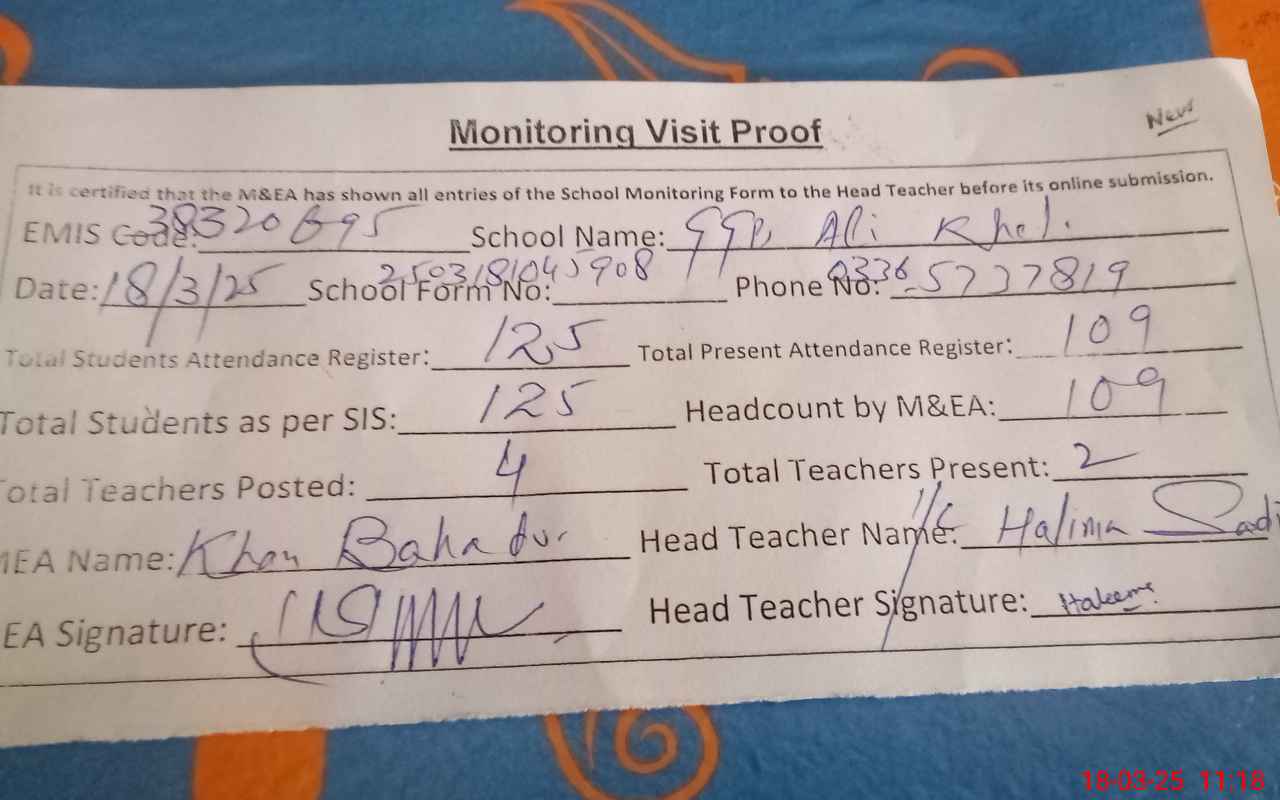 Monitoring Visit Proof
New
It is certified that the M&EA has shown all entries of the School Monitoring Form to the Head Teacher before its online submission.
EMIS Code: 38320695 School Name: GGPS Ali Khel.
Date: 18/3/25 School Form No: 2503181045908 Phone No: 0336-5737819
Total Students Attendance Register: 125 Total Present Attendance Register: 109
Total Students as per SIS: 125 Headcount by M&EA: 109
Total Teachers Posted: 4 Total Teachers Present: 2
MEA Name: Khan Bahadur Head Teacher Name: I/C Halima Sadi
EA Signature: Head Teacher Signature:
18-03-25 11:18